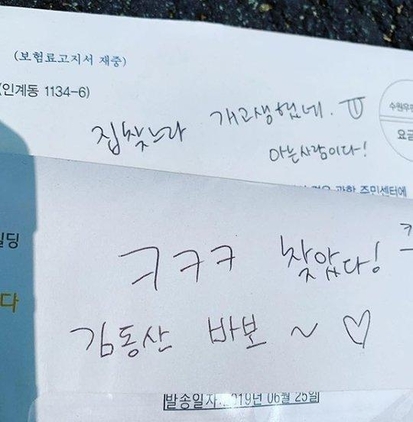 (보험료고지서 재중)
(인계동 1134-6)
수원우편
요금
집찾느라 개고생했네. ㅠ
아는사람이다!
관할 주민센터에
빌딩
다
ㅋㅋㅋ 찾았다!
김동산 바보 ~ ♡
발송일자:2019년 06월 25일